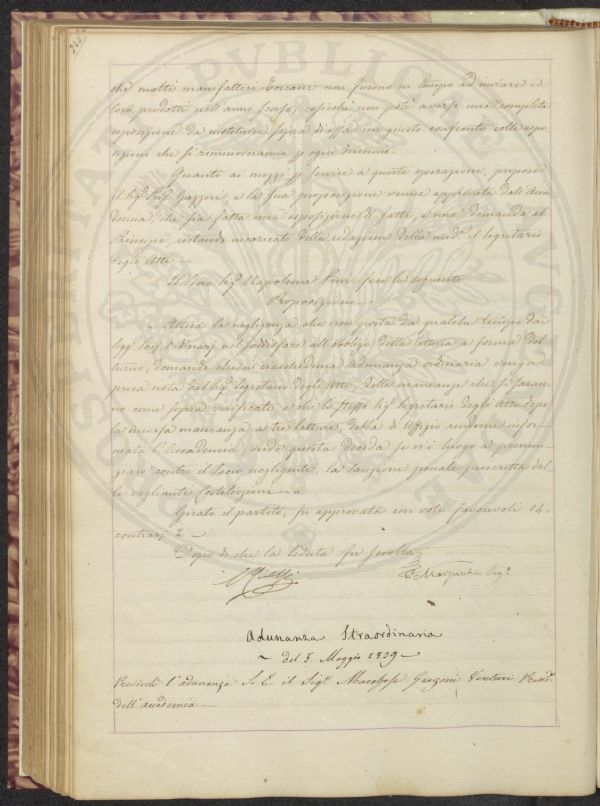 248
che molti manifattori Toscani non furono in tempo ad inviare i
loro prodotti nell'anno scorso, cosicchè non potè aversi una completa
esposizione da istituire sopra di essa un giusto confronto colle espo
sizioni che si rinnuoveranno p ogni triennio.
Quanto ai mezzi p servire a queste operazioni, propose
il Sig. Gazzeri, e la sua proposizione venne approvata dall'Acca
demia, che sia fatta una esposizione di fatti, e una domanda al
Principe, restando incaricato della redazione della med.ª il Segretario
degli Atti.
Il Socio Sig. Napoleone Pini fece la seguente
Proposizione
" Attesa la negligenza che non posta da qualche tempo dai
Sigg. Ordinarj nel soddisfare all'obbligo della lettura a forma del
turno, domando che in ciascheduna adunanza ordinaria venga
presa nota dal Sig. Segretario degli Atti, delle mancanze che si saran
no come sopra verificate, e che lo stesso Sig. Segretario degli Atti dopo
la mancanza a tre letture, debba di Uffizio renderne infor
mata l'Accademia, onde questa decida se vi è luogo a pronun
ziare contro il Socio negligente, la sanzione penale prescritta dal
le veglianti Costituzioni "
Girato il partito, fu approvata con voti favorevoli 14,
contrarj 2
Dopo di che la seduta fu sciolta
Adunanza Straordinaria
del 5. Maggio 1839
Presiede l'adunanza S. E. il Sig.r Marchese Garzoni Venturi Presid.e
dell'accademia